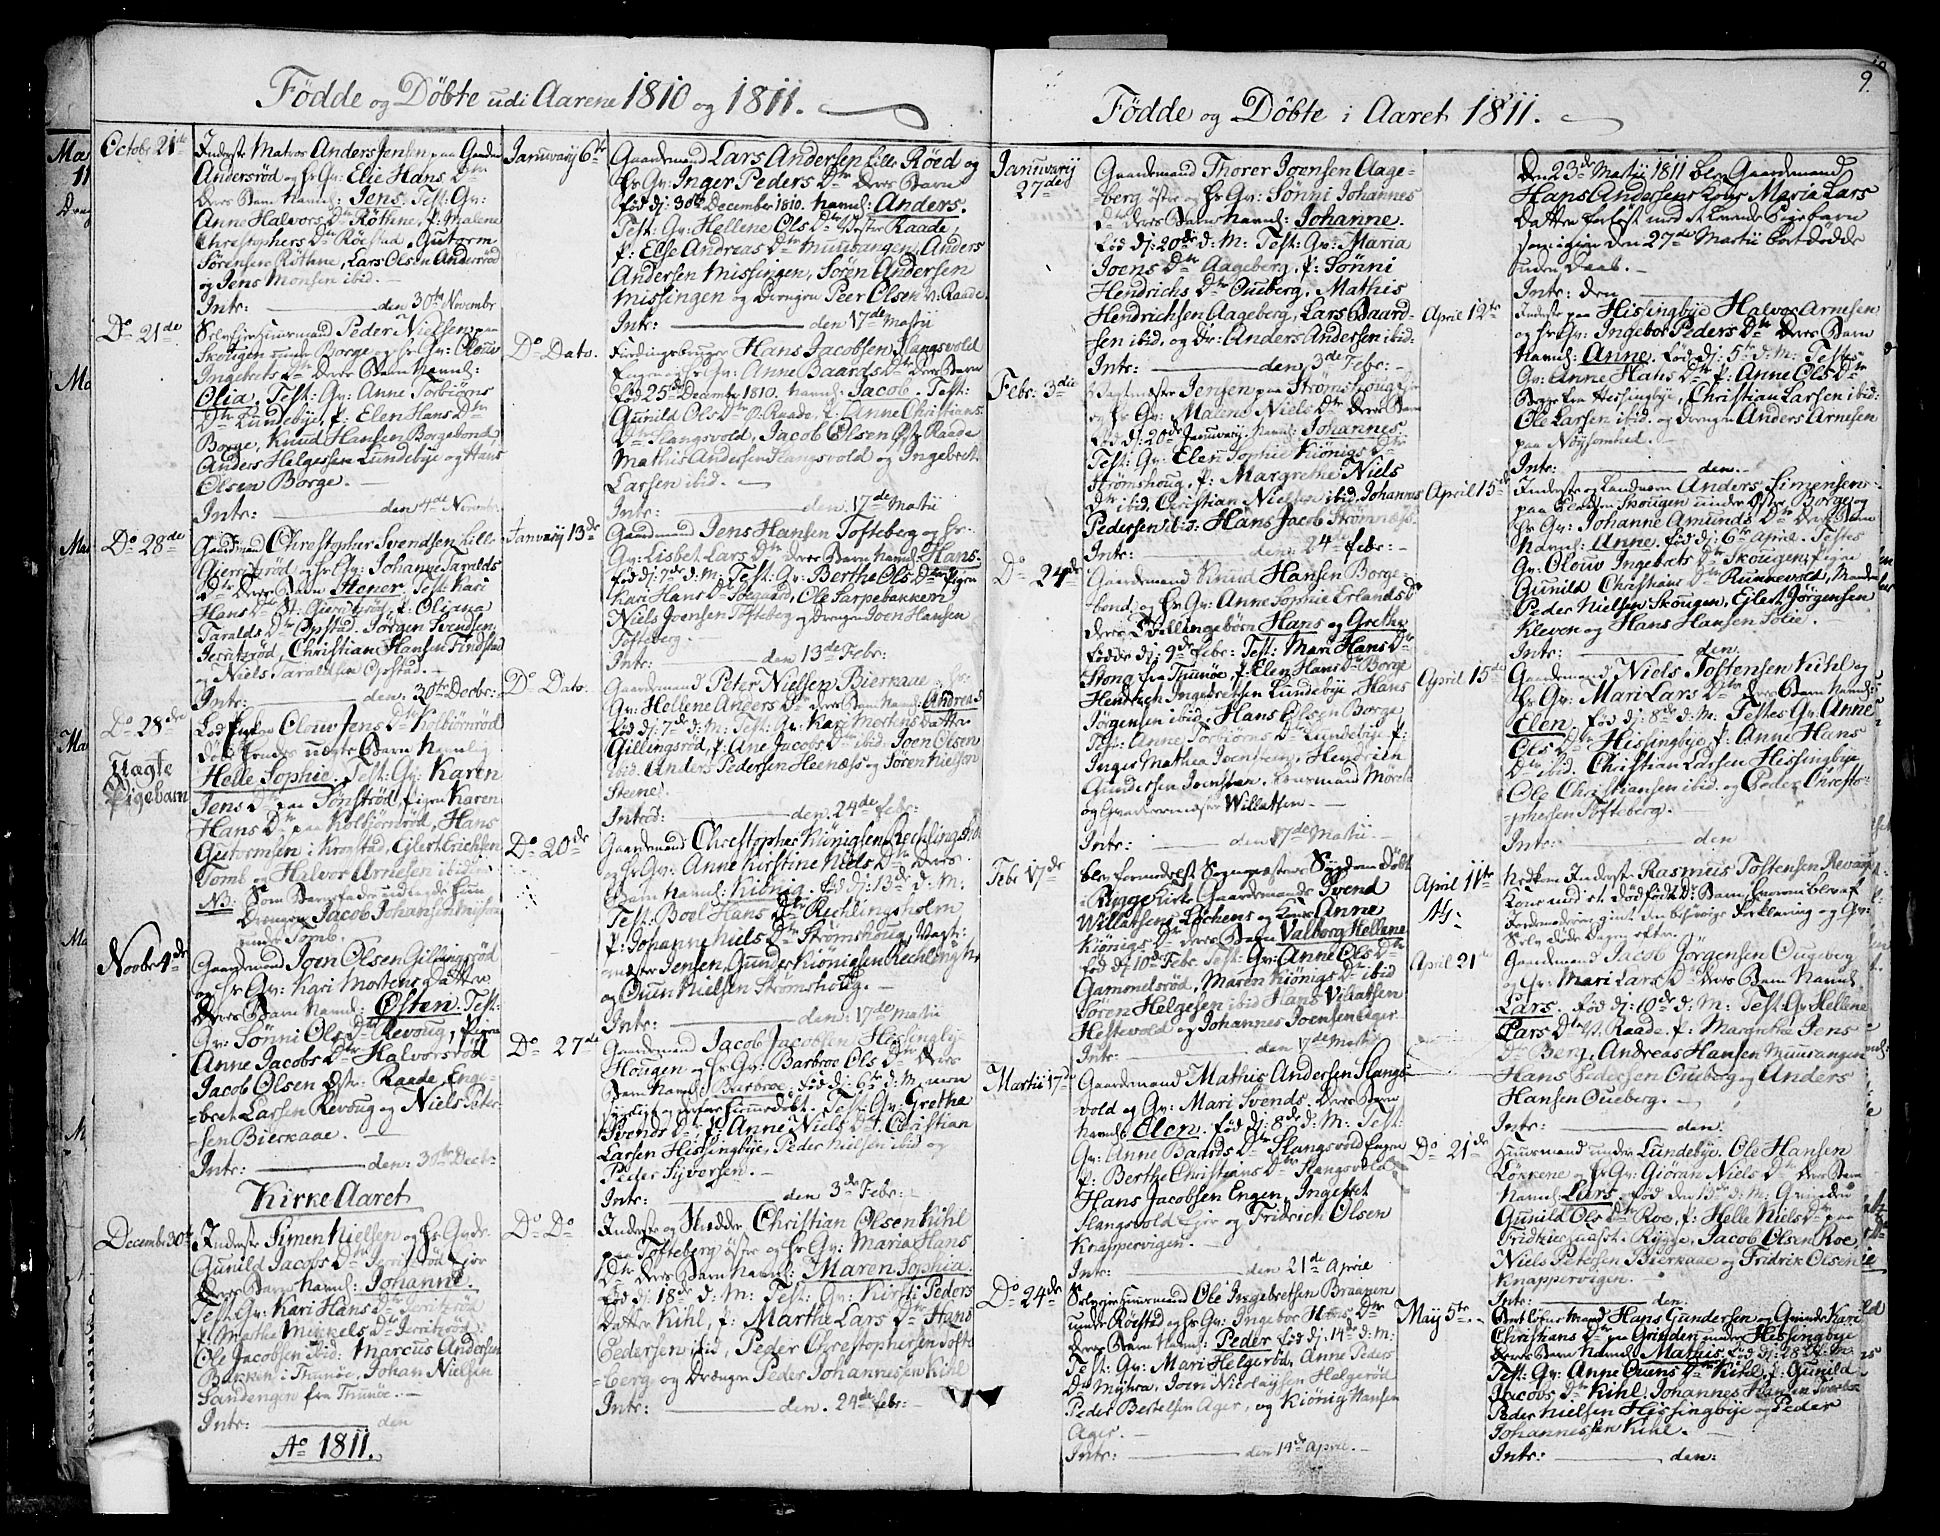 Fødde og Døbte udi Aarene 1810 og 1811.
Octobr 21de
Inderste Matros Anders Jensen paa
Andersrød og hs Gv: Elie Hans Dtr
deres Barn Namnl: Jens. Test: Gv:
Anne Halvors Dtr Röthne, p: Malene
Christophers Dtr Röestad, Gutorm
Sörensen Röthne, Lars Olsen Andersröd
og Jens Monsen ibid. —
Intr: — den 30te Novembr
Do 21de
Selvejerhuusmand Peder Nielsen paa
Skougen under Borge og hs Gv: Olouv
Ingebrets Dtr deres Barn Namnl:
Olia. Test: Gv: Anne Torbiörns
Dtr Lundebye, p: Elen Hans Dtr
Borge, Knud Hansen Borgebond
Anders Helgesen Lundebye og Hans
Olsen Borge. —
Intr: — den 4de Novembr
Do 28de
Gaardmand Christopher Svendsen Lille
og hs Gv: Johanne Taralds
Dtr deres Barn Test: Kari
Hans Dtr p: Oliana
Taralds Dtr Opstad. Jörgen Svendsen
Christian Hansen Findstad
og Niels Taraldsen Opstad. —
Intr: — den 30te Decbr:
Do 28de
Uægte
Pigebarn
Lod Pigen Olouv Jens Dtr Kolbiörnröd
døbe hendes uægte Barn Namnlig
Helle Sophie. Test: Gv: Karen
Jens Dtr paa Sønströd, pigen Karen
Hans Dtr paa Kolbiörnröd, Hans
Gutormsen i Krogstad, Ejlert Erichsen
Tomb og Halvor Arnesen ibidem
NB: Som Barnefader udlagde hun
Drengen Jacob Johansen
under Tomb.
Novbr 4de
Gaardmand Joen Olsen Gillingsröd
og hs Gv: Kari Mortens Datter
deres Barn Namnl: Østen. Test:
Gv: Sønni Ols Dtr Revoug, Pigen
Anne Jacobs Dtr Halvorsröd
Jacob Olsen Østr: Raade, Enge-
bret Larsen Revoug og Niels Peder-
sen Bierkaae. —
Intr: — den: 30te Decbr
Kirke Aaret
December 30te
Inderste Simen Nielsen og hs Gv
Gunild Jacobs Dtr
deres Barn Namnl: Johanne.
Test: Gv: Kari Hans Dtr
p: Marthe Mickels Dtr
Ole Jacobsen ibid: Marcus Andersen
Bakken i Thunöe, Johan Nielsen
Sandengen fra Thunöe. —
Intr: — den
Ao 1811.
Januvarij 6te
Gaardmand Lars Andersen Lille Röed og
hs Gv: Inger Peders Dtr deres Barn
fød dj: 30te December 1810. Namnl: Anders.
Test: Gv: Hellene Ols Dtr Vester Raade,
p: Else Andreas Dtr Muurangen, Anders
Andersen Missingen, Sören Andersen
Missingen og Drengen Peer Olsen V: Raade.
Intr: — den 17de Martii
Do Dato.
Hans Jacobsen Slangsvold
Engen og hs Gv: Anne Baards Dtr deres Barn
fød 25de December 1810. Namnl: Jacob. Test:
Gunild Ols Dtr O. Raade, p: Anne Christians
Dtr Slangsvold, Jacob Olsen Øst: Raade
Mathis Andersen Slangsvold og Ingebret
Larsen ibid. —
Intr: — den 17de Martii
Januarij 13de
Gaardmand Jens Hansen Tofteberg og hs
Gv: Lisbet Lars Dtr deres Barn Namnl: Hans.
fød dj: 7de d: M: Test: Gv: Berthe Ols Dtr, Pigen
Kari Hans Dtr Ole Sarpebakken
Niels Joensen Tofteberg og Drengen Joen Hansen
Tofteberg. —
Intr: — den 13de Febr:
Do Dato.
Gaardmand Peter Nielsen Bierkaae og hs
Gv: Hellene Anders Dtr deres Barn Namnl: Andreas
fød dj: 7de d: M: Test: Gv: Kari Mortens datter
Gillingsröd, p: Ane Jacobs Dtr ibid. Joen Olsen
ibid. Anders Pedersen Heenæss og Sören Nielsen
Steene.
Introd: — den: 24de febr:
Do 20de
Gaardmand Christopher Kiönigsen Rechlingsholm
og hs Gv: Anne Kirstine Niels Dtr deres
Barn Namnl: Kiönig. fød dj: 13de d: M:
Test: Boel Hans Dtr Rechlingsholm
p: Johanne Niels Dtr Strömshoug, Vagt-
mester Jensen, Gunder Kiönigsen Rechlingsh.
og Ouen Nielsen Strömshoug. —
Intr: — den: 17de Martii
Do 27de
Gaardmand Jacob Jacobsen Hissingbye
Hougen og hs Gv: Barbroe Ols Dtr deres
Barn Namnl: Barbroe, fød dj: 6te d: M: men
hiemmedøbt. Test: Gv: Grethe
Svends Dtr p: Anne Niels Dtr Christian
Larsen Hissingbye, Peder Nielsen ibid og
Peder Syversen. —
Intr: — den 3de Febr:
Do Do
Inderste og Skrædder Christian Olsen Kihl
paa Tofteberg østre og hs Gv: Maria Hans
Dtr deres Barn Namnl: Maren Sophia.
fød dj: 18de d: M: Test: Gv: Kirsti Peders
Datter Kihl, p: Marthe Lars Dtr Hans
Pedersen ibid, Peder Christophersen Tofte-
berg og Drængen Peder Johannessen Kihl
Intr: — den. 24de febr: —
Fødde og Døbte i Aaret 1811.
9.
Januvarij
27de
Gaardmand Thorer Joensen Aage-
berg östre og hs Gv: Sønni Johannes
Dtr deres Barn Namnl: Johanne.
fød dj: 20de d: M: Test: Gv: Maria
Joens Dtr Aageberg, p: Sønni
Hendrichs Dtr Oueberg. Mathis
Hendrichsen Aageberg, Lars Baard-
sen ibid, og Dr: Anders Andersen ibid:
Intr: — den 3de Febr: —
Febr: 3die
Vagtmester Jensen paa Strömshoug
og hs Gv: Malene Niels Dtr deres Barn
fød dj: 20de Januvarij. Namnl: Johannes
Test: Gv: Elen Sophie Kiönigs Dtr
Strömshoug, p: Margrethe Niels
Dtr ibid, Christian Nielsen ibid, Johannes
Pedersen ibid. Hans Jacob Strömnæss.
Intr: — den: 24de febr: —
Do 24de
Gaardmand Knud Hansen Borge-
bond, og hs Gv: Anne Sophie Erlands Dr
deres Tvillingebörn Hans og Grethe
fødde dj: 9de febr: Test: Mari Hans Dtr
Stong fra Thunöe, p: Elen Hans Dtr Borge
Hendrich Ingebretsen Lundebye, Hans
Jörgensen ibid: Hans Olsen Borge
Test: Anne Torbiörns Dtr Lundebye p:
Inger Mathea Hendrich
Gundersen Lensmand
og Willatsen. —
Intr: — den 17de Martii. —
Febr 17de
blev formedelst Sognepræstens Sygdom døbt
i Rygge Kirke Gaardmand Svend
Willatsens Löckens og Kone Anne
Kiönigs Dtr deres Barn Valborg Hellene
fød dj 10de Febr. Test: Gv: Anne Ols Dtr
Gammelsröd, Maren Kiönigs Dtr ibid
Sören Helgesen ibid Hans Villatsen
Hestevold og Johannes Joensen Ager
Intr: — den 17de Martii
Martii 17de
Gaardmand Mathis Andersen Slangs-
vold og Gv: Mari Svends. deres Barn
Namnl: Elen. fød dj: 8de d: M: Test:
Gv: Anne Baards Dtr Slangsvold Engen
p: Berthe Christians Dtr Slangsvold
Hans Jacobsen Engen, Ingebret
Slangsvold Ejer og Fridrich Olsen
Knappervigen. —
Intr: — den 21de Aprie
Do 24de
Selvejerhuusmand Ole Ingebretsen Braanen
under Röestad og hs Gv: Ingebor Hans Dtr
deres Barn Namnl: Peder fød dj: 14de d: M:
Test: Gv: Mari Helgeröd, Anne Peders
Dtr Myhra, Joen Nicolaysen Helgeröd
Peder Bertelsen Ager, og Kiönig Hansen
Ager. —
Intr: — den 14de April. —
Den 23de Martii 1811 blev Gaardmand
Hans Andersens Kone Maria Lars
Datter forløst med et levende Pigebarn
som igien den 27de Martii bortdødde
uden Daab. —
Intr: den —
April 12te
Inderste paa Hissingbye Halvor Arnesen
og hs Gv: Ingebor Peders Dtr deres Barn
Namnl: Anne. fød dj: 5te d: M: Testes
Gv: Anne Hans Dtr p: Anne Ols Dtr
Begge fra Hissingbye, Christian Larsen ibid:
Ole Larsen ibid. og Drengen Anders Arnesen
paa Nöysomhed. —
Intr: — den. —
April 15de
Inderste og Landværn Anders Simensen
paa Pladsen Skougen under Østre Borge og
hs Gv: Johanne Amunds Dtr deres Barn
Namnl: Anne. fød dj: 6te April. Testes
Gv: Olouv Ingebrets Dtr Skougen, Pigen
Gunild Christians Dtr Runnevold, Mændene
Peder Nielsen Skougen, Ejlert Jörgensen
Kleven og Hans Hansen Solie.
Intr: — den
April 15de
Gaardmand Niels Tostensen Kihl og
hs Gv: Mari Lars Dtr deres Barn Namnl:
Elen. fød dj: 8de d: M: Testes Gv: Anne
Ols Dtr Hissingbye, p: Anne Hans
Dtr ibid. Christian Larsen Hissingbye
Ole Christiansen ibid. og Peder Christo-
phersen Tofteberg. —
Intr: — den
April 11te
nedkom Inderste Rasmus Tostensen Revoug
Kone med et dødfødt d: Barn, hvorom blev af
Jordemoderen giort den befalede Forklaring og Gv:
Selv døde dagen efter.
April 21de
Gaardmand Jacob Jörgensen Oueberg
og Gv: Mari Lars Dtr deres Barn Namnl:
Lars. fød dj: 10de d: M: Test: Gv: Hellene
Lars Dtr V. Raade. p: Margrethe Jens
Dtr Berg, Andreas Hansen Muurangen
Hans Pedersen Oueberg og Anders
Hansen Oueberg. —
Intr: — den:
Do 21de
Huusmand under Lundebye Ole Hansen
Løkkene og hs Gv: Giöran Niels Dtr deres Barn
Namnl: Lars. fød den 13de d: M:
Gunild Ols Dtr Roe, p: Helle Niels Dtr paa
Rygge, Jacob Olsen Roe,
Niels Petersen Bierkaae og Fridrik Olsen
Knappervigen.
Intr: — den:
May 5te.
Hans Gundersen og Kari
Christians Dtr paa Grinden under Hissingbye
deres Barn Namnl: Mathis. fød dj: 28de f: M:
Test: Gv: Anne Ouens Dtr Kihl, p: Gunild
Jacobs Dtr Kihl. Johannes Hansen
Peder Nielsen Hissingbye og Peder
Johannessen Kihl. —
Intr: — den: